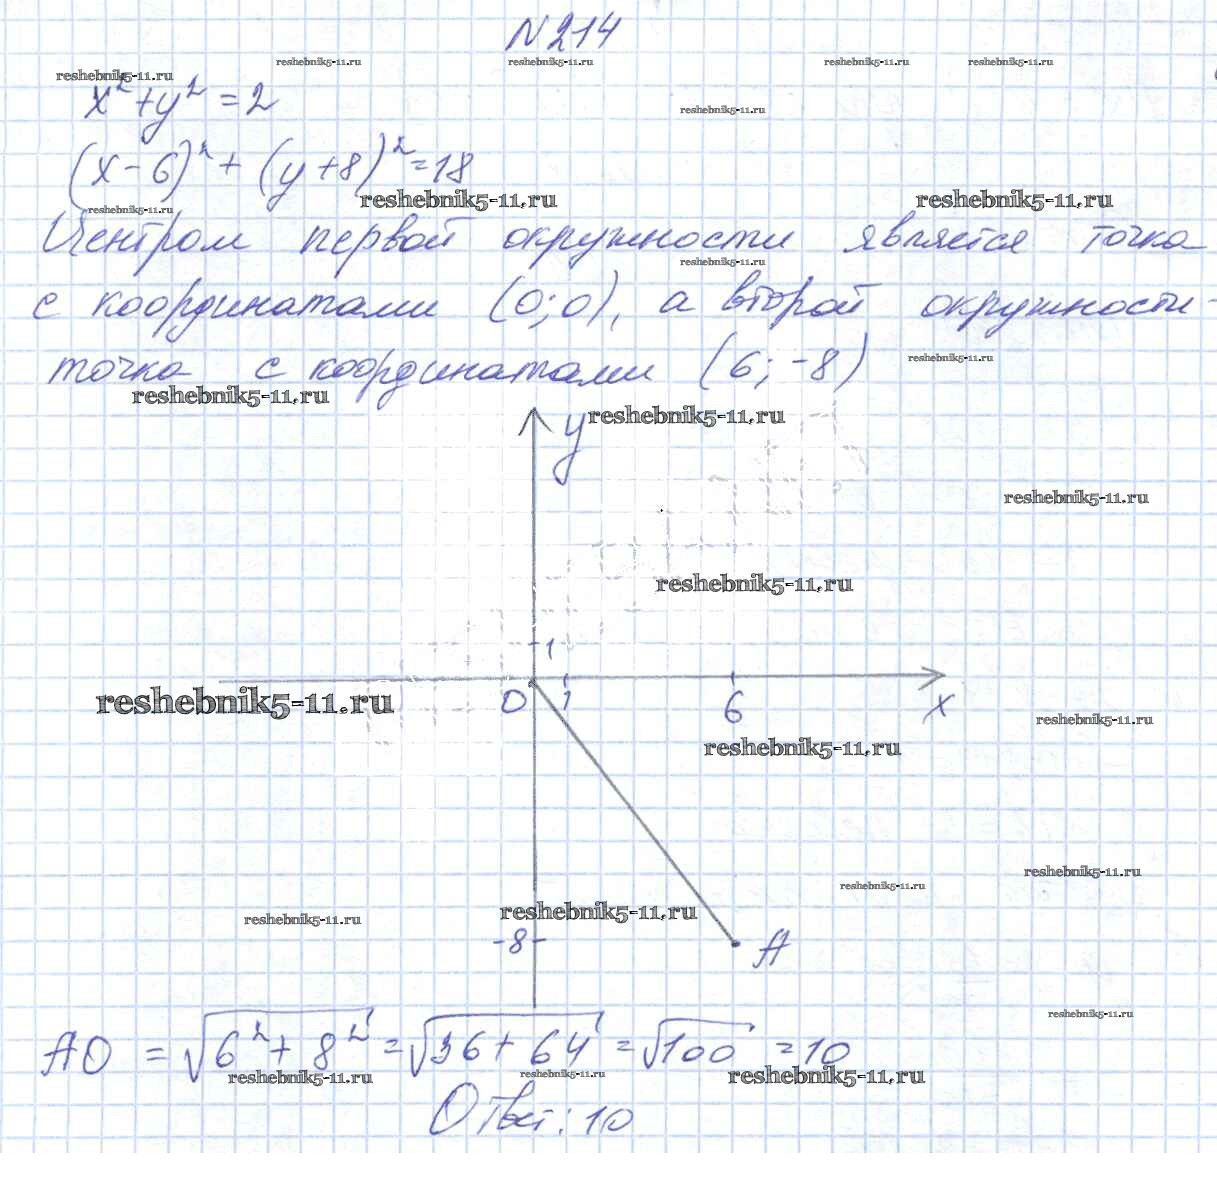 N 214
reshebnik5-11.ru reshebnik5-11.ru reshebnik5-11.ru reshebnik5-11.ru
reshebnik5-11.ru
x² + y² = 2
reshebnik5-11.ru
(x - 6)² + (y + 8)² = 18
reshebnik5-11.ru reshebnik5-11.ru
reshebnik5-11.ru
Центром первой окружности является точка
reshebnik5-11.ru
с координатами (0; 0), а второй окружности -
точка с координатами (6; -8)
reshebnik5-11.ru
reshebnik5-11.ru
y reshebnik5-11.ru
reshebnik5-11.ru
reshebnik5-11.ru
1
reshebnik5-11.ru 0 1 6 x
reshebnik5-11.ru
reshebnik5-11.ru
reshebnik5-11.ru
reshebnik5-11.ru
reshebnik5-11.ru reshebnik5-11.ru
-8 A
reshebnik5-11.ru
AO = √6² + 8² = √36 + 64 = √100 = 10
reshebnik5-11.ru reshebnik5-11.ru reshebnik5-11.ru
Ответ: 10